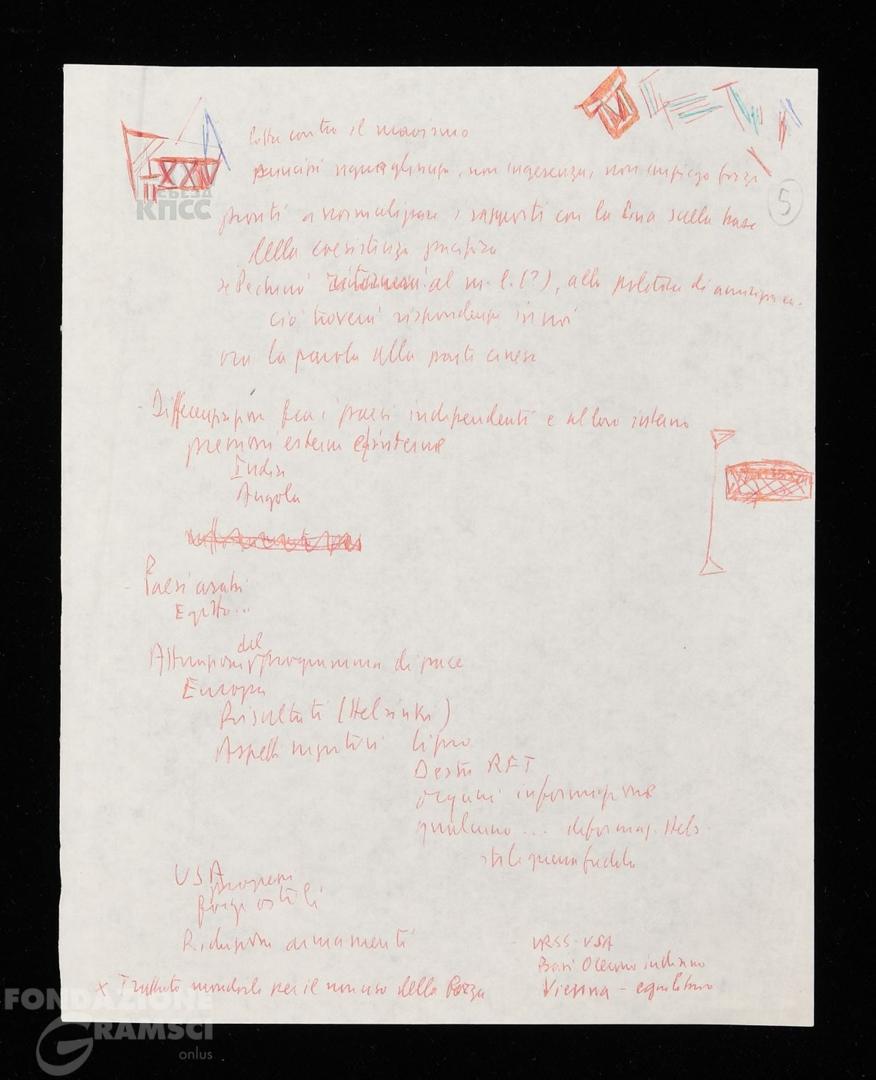 XXV
СЪЕЗД
КПСС
5
lotta contro il maoismo
principi uguaglianza, non ingerenza, non impiego forza
pronti a normalizzare i rapporti con la Cina sulla base
della coesistenza pacifica
se Pechino al m.l. (?), alla politica di amicizia ecc.
ciò troverà rispondenza in noi
ora la parola alla parte cinese
- Differenziazione fra i paesi indipendenti e al loro interno
pressioni esterne e interne
India
Angola
- Paesi arabi
Egitto...
Attuazione del programma di pace
Europa
Risultati (Helsinki)
Aspetti negativi Cipro
Destra RFT
organi informazione
qualcuno... deformaz. Hels.
stile guerra fredda
USA progressi
forze ostili
Riduzione armamenti
URSS-USA
Basi Oceano indiano
Vienna - equilibrio
x Trattato mondiale per il non uso della forza
FONDAZIONE
GRAMSCI
onlus